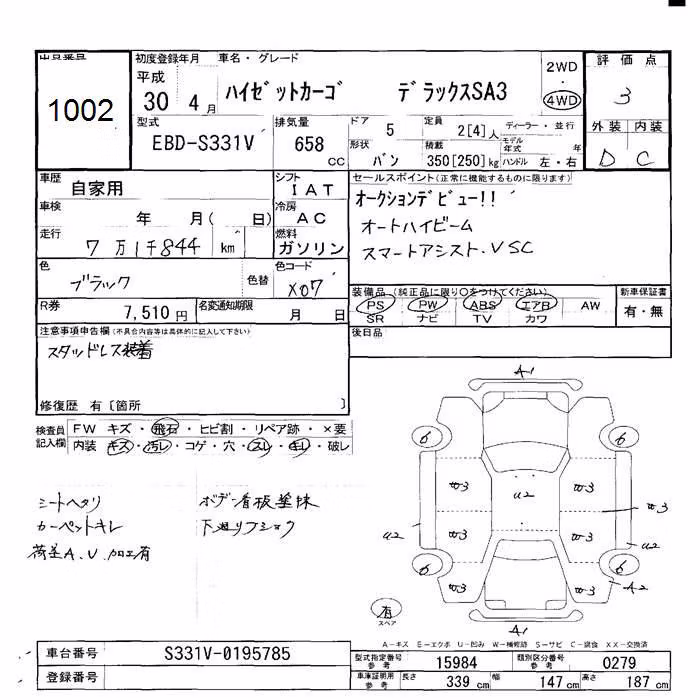 出品番号
1002
初度登録年月 車名・グレード
平成 30 4月 ハイゼットカーゴ デラックスSA3
2WD
・
4WD
評価点
3
外装 内装
D C
型式
EBD-S331V
排気量
658 cc
ドア 5
定員 2[4]人
ディーラー・並行
形状 バン
積載 350[250]kg
モデル年式 年
ハンドル 左・右
車歴 自家用
シフト IAT
車検 年 月( 日)
冷房 AC
走行 7万1千844 km
燃料 ガソリン
色 ブラック 色替
色コード X07
R券 7,510円
名変通知期限 月 日
セールスポイント(正常に機能するものに限ります)
オークションデビュー!!
オートハイビーム
スマートアシスト.VSC
装備品(純正品に限り○をつけてください)
PS PW ABS エアB AW
SR ナビ TV カワ
新車保証書
有・無
後日品
注意事項申告欄(不具合内容等は具体的に記入して下さい)
スタッドレス装着
修復歴 有[箇所 ]
検査員記入欄
FW キズ・飛石・ヒビ割・リペア跡・×要
内装 キズ・汚レ・コゲ・穴・スレ・キレ・破レ
シートヘタリ
カーペットキレ
荷室A.U.加工有
ボデー看板塗抹
下廻リフショク
A1
6 6
W3 U2 W3
W3 W3 W3
U2 U2
6 6
W3 W3 A2
A1
有
スペア
A-キズ E-エクボ U-凹み W-補修跡 S-サビ C-腐食 XX-交換済
車台番号 S331V-0195785
登録番号
型式指定番号 参考 15984
類別区分番号 参考 0279
車庫証明用 参考 長さ 339 cm 幅 147 cm 高さ 187 cm